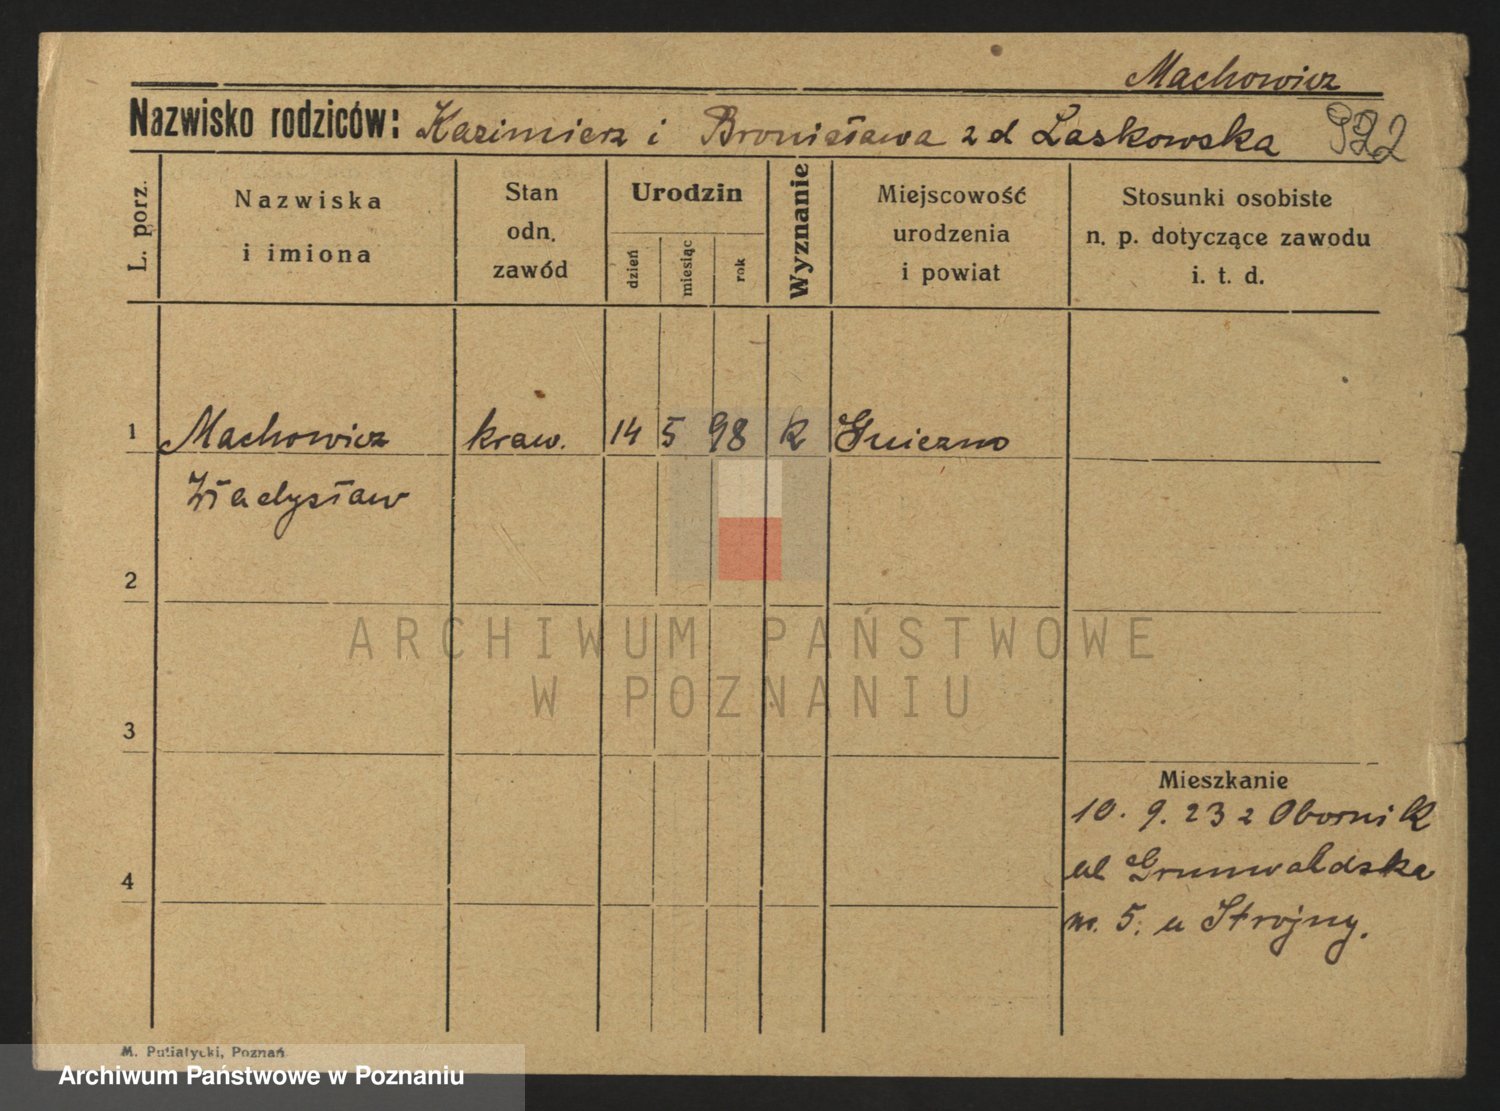 Machowicz
Nazwisko rodziców: Kazimierz i Bronisława z d Laskowska 922
L. porz.
Nazwiska i imiona
Stan odn. zawód
Urodzin
dzień
miesiąc
rok
Wyznanie
Miejscowość urodzenia i powiat
Stosunki osobiste n. p. dotyczące zawodu i. t. d.
1 Machowicz kraw. 14 5 98 k Gniezno
Władysław
2
ARCHIWUM PAŃSTWOWE
W POZNANIU
3
Mieszkanie
10. 9. 23 z Obornik
4
ul Grunwaldska
m. 5. u Strojny.
M. Putiatycki, Poznań
Archiwum Państwowe w Poznaniu